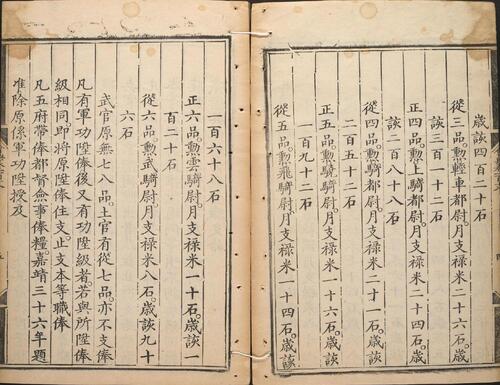 歲該四百二十石
從三品勲輕車都尉月支祿米二十六石歲
該三百一十二石
正四品勲上騎都尉月支祿米二十四石歲
該二百八十八石
從四品勲騎都尉月支祿米二十一石歲該
二百五十二石
正五品勲驍騎尉月支祿米一十六石歲該
一百九十二石
從五品勲飛騎尉月支祿米一十四石歲該
一百六十八石
正六品勲雲騎尉月支祿米一十石歲該一
百二十石
從六品勲武騎尉月支祿米八石歲該九十
六石
武官原無七八品土官有從七品亦不支俸
凡有軍功陞俸後又有功陞級者若與所陞俸
級相同即將原陞俸住支止支本等職俸
凡五府帶俸都督僉事俸糧嘉靖三十六年題
准除原係軍功陞授及